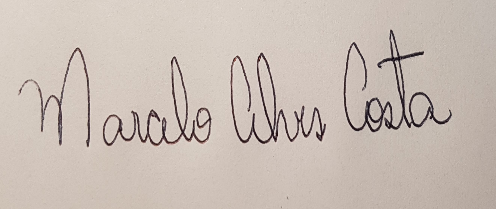 Marcelo Alves Costa